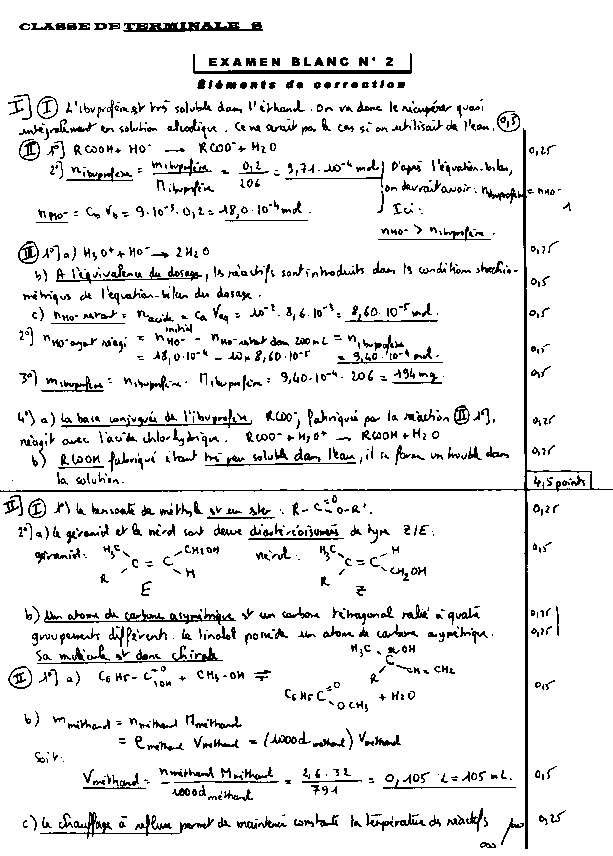 CLASSE DE TERMINALE S
EXAMEN BLANC N° 2
Eléments de correction
I] (I) L'ibuprofène est très soluble dans l'éthanol. On va donc le récupérer quasi
intégralement en solution alcoolique. Ce ne serait pas le cas si on utilisait de l'eau. 0,5
(II) 1°] RCOOH + HO⁻ → RCOO⁻ + H₂O 0,25
2°] n ibuprofène = m ibuprofène / M ibuprofène = 0,2 / 206 = 9,71·10⁻⁴ mol } D'après l'équation-bilan,
on devrait avoir : n ibuprofène = n HO⁻
n HO⁻ = C₀ V₀ = 9·10⁻³·0,2 = 18,0·10⁻⁴ mol. Ici : 1
n HO⁻ > n ibuprofène.
(III) 1°] a) H₃O⁺ + HO⁻ → 2H₂O 0,25
b) A l'équivalence du dosage, les réactifs sont introduits dans les conditions stœchio-
métriques de l'équation-bilan du dosage. 0,5
c) n HO⁻ restant = n acide = Ca Veq = 10⁻²·8,6·10⁻³ = 8,60·10⁻⁵ mol. 0,5
2°] n HO⁻ ayant réagi = n HO⁻ initial - n HO⁻ restant dans 200 mL = n ibuprofène
= 18,0·10⁻⁴ - 10 × 8,60·10⁻⁵ = 9,40·10⁻⁴ mol. 0,5
3°) m ibuprofène = n ibuprofène · M ibuprofène = 9,40·10⁻⁴·206 = 194 mg. 0,5
4°) a) La base conjuguée de l'ibuprofène, RCOO⁻, fabriquée par la réaction (II) 1°], 0,25
réagit avec l'acide chlorhydrique. RCOO⁻ + H₃O⁺ → RCOOH + H₂O
b) RCOOH fabriqué étant très peu soluble dans l'eau, il se forme un trouble dans 0,25
la solution.
4,5 points
II] (I) 1°) Le benzoate de méthyle est un ester : R - C =O O-R'. 0,25
2°] a) le géraniol et le nérol sont deux diastéréoisomères de type Z/E :
géraniol : H₃C R C = C CH₂OH H E nérol : H₃C R C = C H CH₂OH Z 0,5
b) Un atome de carbone asymétrique est un carbone tétragonal relié à quatre 0,25
groupements différents. Le linalol possède un atome de carbone asymétrique. 0,25
Sa molécule est donc chirale H₃C OH C R CH = CH₂
(II) 1°] a) C₆H₅ - C =O OH + CH₃-OH ⇌ C₆H₅ C =O OCH₃ + H₂O 0,5
b) m méthanol = n méthanol M méthanol
= ρ méthanol V méthanol = (1000 d méthanol) V méthanol
Soit :
V méthanol = n méthanol M méthanol / 1000 d méthanol = 2,6·32 / 791 = 0,105 L = 105 mL. 0,5
c) Le chauffage à reflux permet de maintenir constante la température des réactifs 0,25